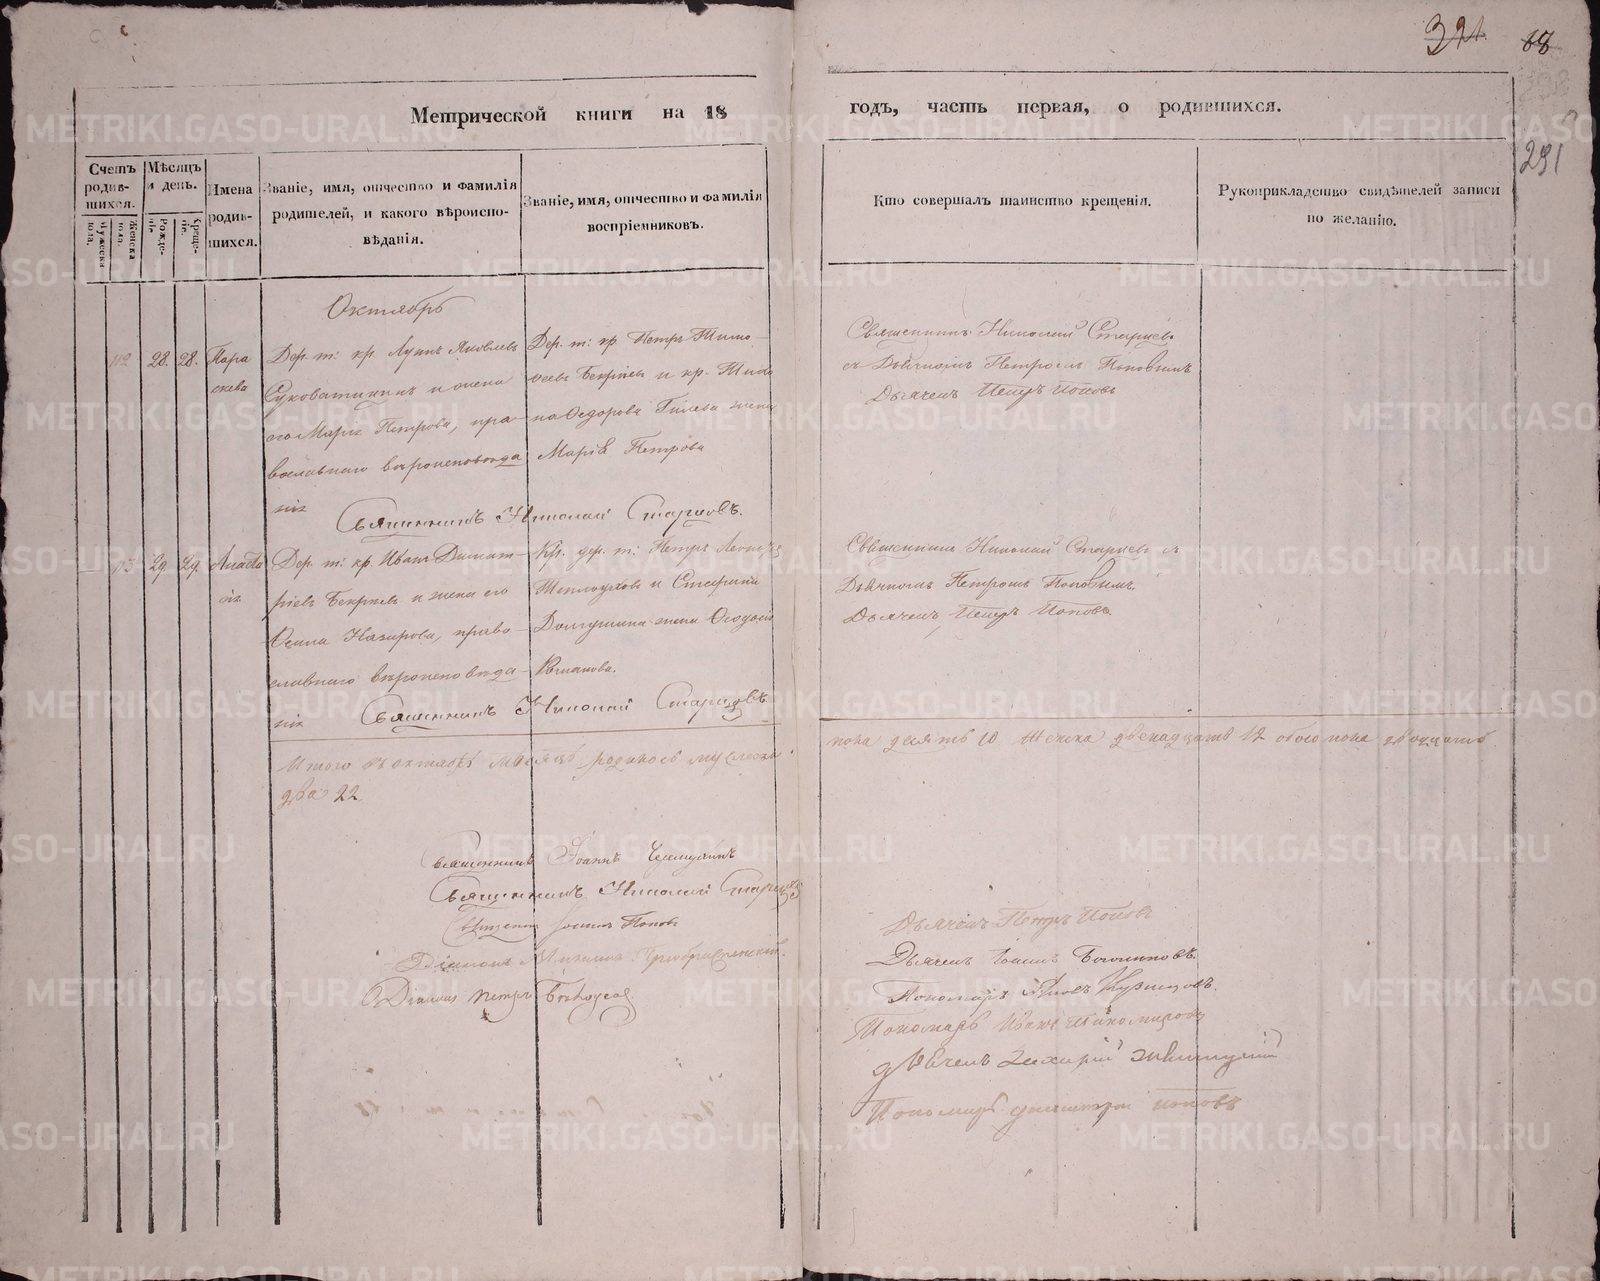 321. 18
291
Метрической книги на 18
годъ, часть первая, о родившихся.
Счетъ родив-шихся.
Мужеска пола.
Женска пола.
Мѣсяцъ и день.
Рожде-нія.
Креще-нія.
Имена родив-шихся.
Званіе, имя, отчество и фамилія
родителей, и какого вѣроиспо-
вѣданія.
Званіе, имя, отчество и фамилія
воспріемниковъ.
Кто совершалъ таинство крещенія.
Рукоприкладство свидѣтелей записи
по желанію.
Октябрь
112 28. 28. Пара
скева
Дер. т: кр. Лукъ Яковлевъ
и жена
его Марія Петрова, пра-
вославнаго вѣроисповѣда
нія
Дер. т: кр. Петръ Тимо-
веевъ Бекревъ и кр.
на Ѳедорова Гилева жена
Марія Петрова
Священникъ Николай Старцевъ
съ Дьячкомъ Петромъ Поповымъ
Дьячекъ Петръ Поповъ
Священникъ Николай Старцовъ.
113 29. 29. Анаста
сія
Дер. т: кр. Иванъ Димит-
ріевъ Бекревъ и жена его
Назарова, право-
славнаго вѣроисповѣда-
нія
Кр. дер. т: Петръ
Теплоуховъ и
жена Ѳеодосія
Романова.
Священникъ Николай Старцевъ съ
Дьячкомъ Петромъ Поповымъ.
Дьячекъ Петръ Поповъ
Священникъ Николай Старцовъ
Итого въ октябрѣ мѣсяцѣ родилось мужеска
пола десять 10 женска двенадцать 12 обоего пола двадцать
два 22
Священникъ Іоаннъ
Священникъ Николай Старцевъ
Священникъ Іоаннъ Поповъ
Діаконъ Михаилъ Преображенскій.
Діаконъ Петръ
Дьячекъ Петръ Поповъ
Дьячекъ Іоаннъ
Пономарь Яковъ Кузнецовъ.
Пономарь Иванъ Тихомировъ
дьячекъ Захарій
Пономарь Димитрій Поповъ
METRIKI.GASO-URAL.RU